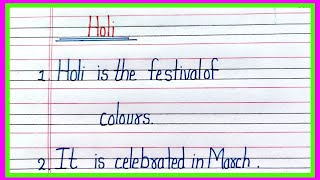 Holi
1. Holi is the festival of
colours.
2. It is celebrated in March.